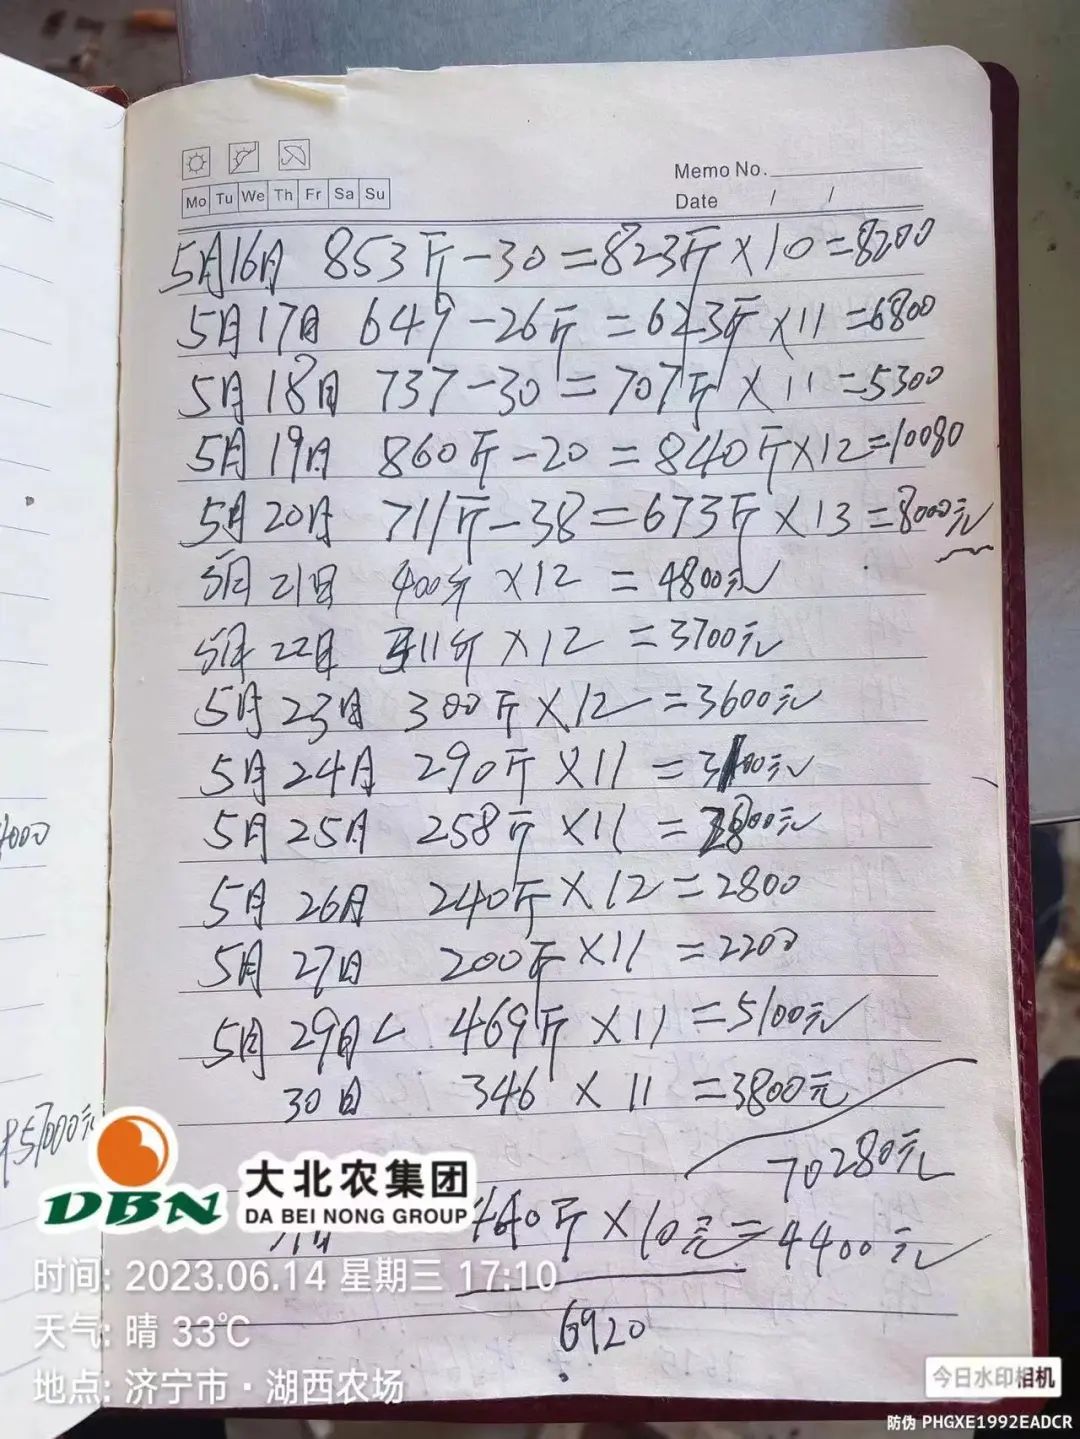 Memo No.
Mo Tu We Th Fr Sa Su
Date / /
5月16日 853斤-30=823斤×10=8200
5月17日 649-26斤=623斤×11=6800
5月18日 737-30=707斤×11=5300
5月19日 860斤-20=840斤×12=10080
5月20日 711斤-38=673斤×13=8000元
5月21日 400斤×12=4800元
5月22日 311斤×12=3700元
5月23日 300斤×12=3600元
5月24日 290斤×11=3100元
5月25日 258斤×11=2800元
5月26日 240斤×12=2800
5月27日 200斤×11=2200
5月29日 469斤×11=5100元
30日 346×11=3800元
70280元
440斤×10元=4400元
6920
大北农集团
DBN
DA BEI NONG GROUP
时间: 2023.06.14 星期三 17:10
天气: 晴 33℃
地点: 济宁市·湖西农场
今日水印相机
防伪 PHGXE1992EADCR